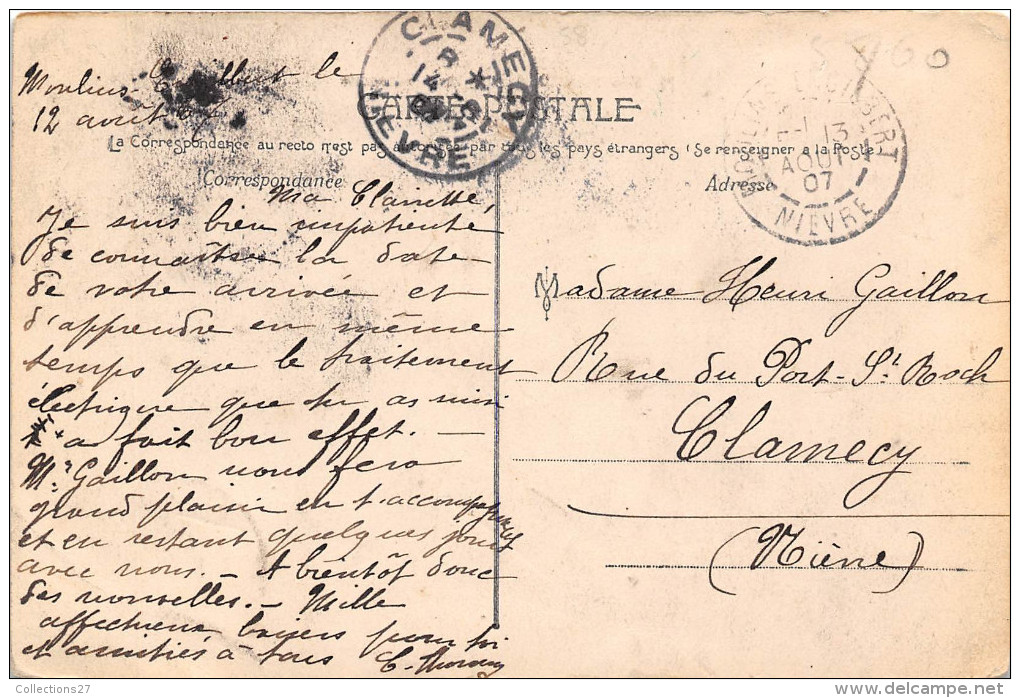 CLAMECY
8 *
14 -8
07
NIEVRE
5 400
58
MOULINS-ENGILBERT
13
AOUT
07
NIEVRE
CARTE POSTALE
La Correspondance au recto n'est pas autorisée par tous les pays étrangers (Se renseigner à la Poste)
Correspondance
Adresse
Moulins Engilbert le
12 août 07
Ma Clairette,
Je suis bien impatiente
de connaître la date
de votre arrivée et
d'apprendre en même
temps que le traitement
électrique que tu as suivi
t'a fait bon effet. —
Mr Gaillon nous fera
grand plaisir en t'accompagnant
et en restant quelques jours
avec nous. — A bientôt donc
des nouvelles. — Mille
affectueux baisers pour toi
et amitiés à tous
Madame Henri Gaillon
Rue du Port-St Roch
Clamecy
(Nièvre)
Collections27
delcampe.net